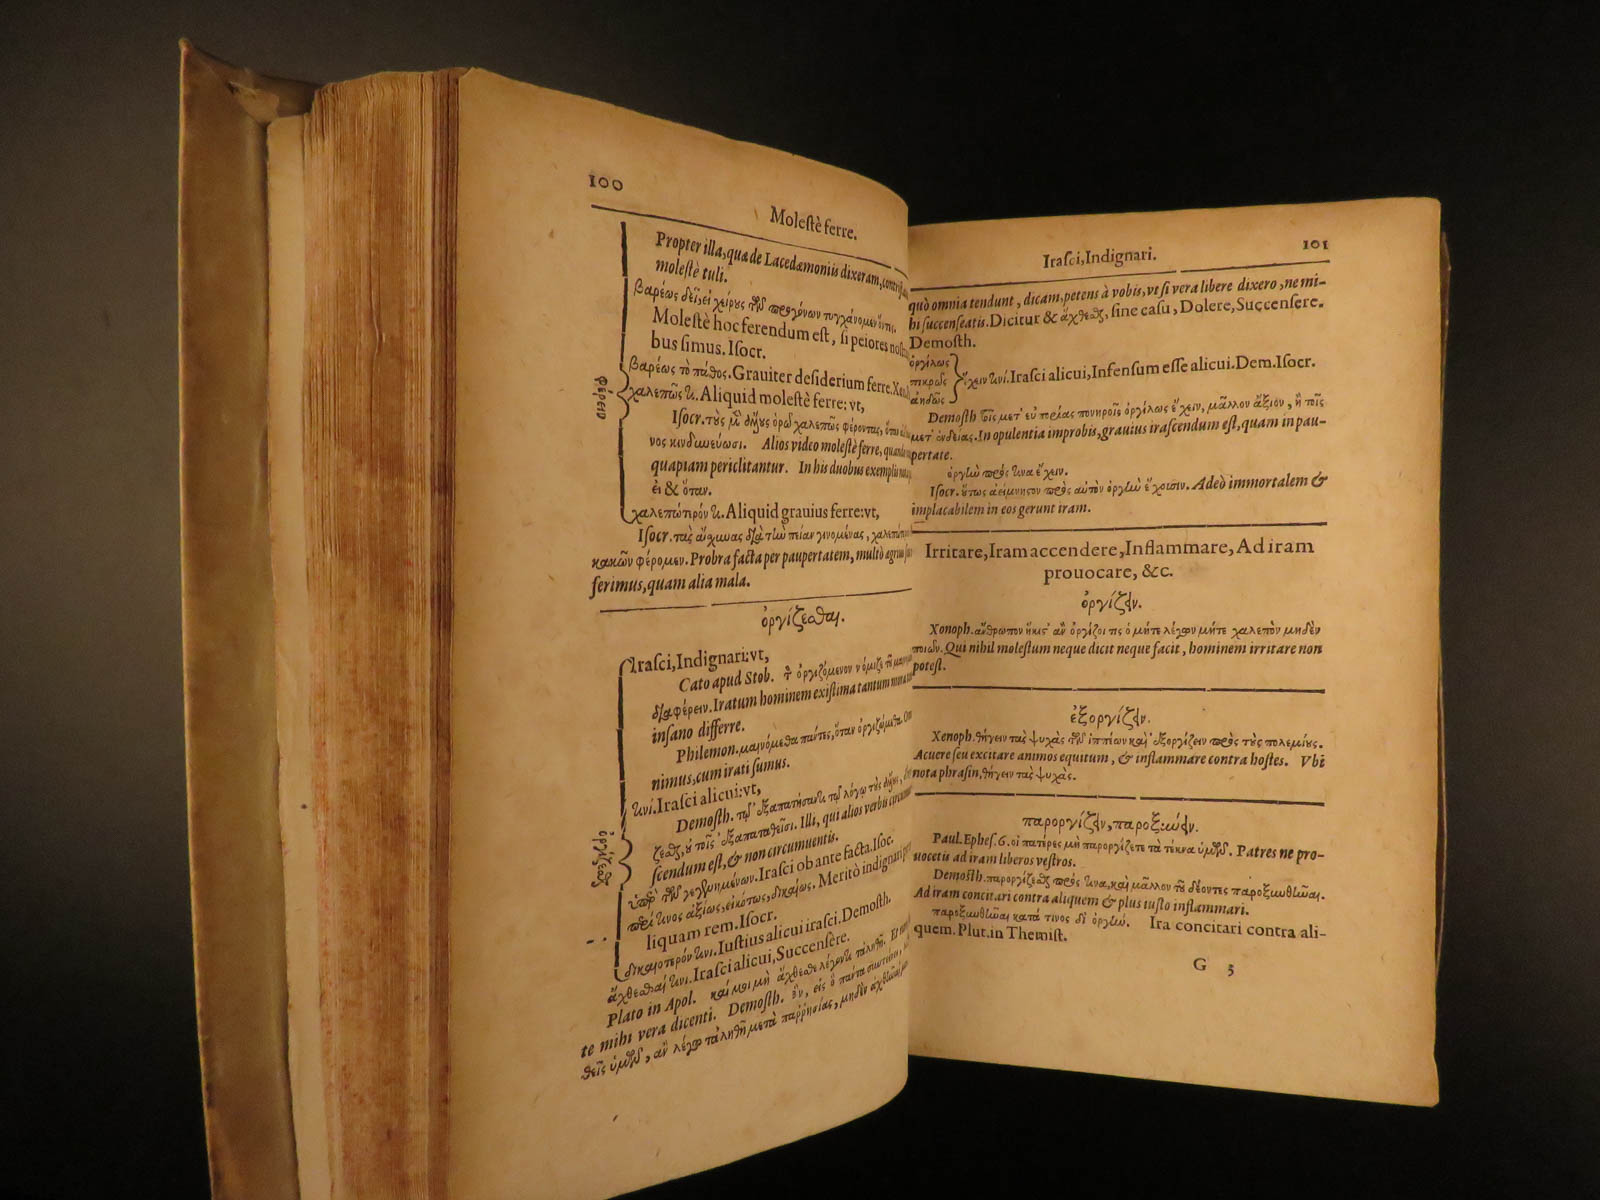 100
Molestè ferre.
Propter illa, quæ de Lacedæmoniis dixeram,
molestè tuli.
βαρέως δεῖ, εἰ χείρους τῶν προγόνων τυγχάνομεν ὄντες.
Molestè hoc ferendum est, si peiores nostris
bus simus. Isocr.
φέρειν
βαρέως τὸ πάθος. Grauiter desiderium ferre. Xen.
χαλεπῶς τι. Aliquid molestè ferre: vt,
Isocr. τοὺς μὲν ἄλλους ὁρῶ χαλεπῶς φέροντας,
νος κινδυνεύωσι. Alios video molestè ferre, quando
quapiam periclitantur. In his duobus exemplis
εἰ & ὅταν.
χαλεπώτερόν τι. Aliquid grauius ferre: vt,
Isocr. τὰς αἰσχύνας διὰ τὴν πενίαν γινομένας,
κακῶν φέρομεν. Probra facta per paupertatem, multò
ferimus, quam alia mala.
ὀργίζεσθαι.
Irasci, Indignari: vt,
Cato apud Stob. τὸν ὀργιζόμενον νόμιζε τοῦ
διαφέρειν. Iratum hominem existima tantum
insano differre.
Philemon. μαινόμεθα πάντες, ὅταν ὀργιζώμεθα.
nimus, cum irati sumus.
ὀργίζεσθαι
τινί. Irasci alicui: vt,
Demosth. τῷ ἐξαπατήσαντι τῷ λόγῳ τοὺς ἄλλους,
ζεσθαι, οὐ τοῖς ἐξαπατηθεῖσι. Illi, qui alios verbis
scendum est, & non circumuentis.
ὑπὲρ τῶν γεγενημένων. Irasci ob ante facta. Isoc.
περί τινος ἀξίως, εἰκότως, δικαίως. Meritò indignari
liquam rem. Isocr.
δικαιότερόν τινι. Iustius alicui irasci. Demosth.
ἄχθεσθαί τινι. Irasci alicui, Succensere.
Plato in Apol. καί μοι μὴ ἄχθεσθε λέγοντι τἀληθῆ.
te mihi vera dicenti. Demosth.
θεῖς ὑμῶν, ἂν λέγω τἀληθῆ μετὰ παῤῥησίας, μηδὲν
101
Irasci, Indignari.
quò omnia tendunt, dicam, petens à vobis, vt si vera libere dixero, ne mi-
hi succenseatis. Dicitur & ἄχθεσθαι, sine casu, Dolere, Succensere.
Demosth.
ὀργίλως
πικρῶς
ἀηδῶς
ἔχειν τινί. Irasci alicui, Infensum esse alicui. Dem. Isocr.
Demosth. τοῖς μετ' εὐπορίας πονηροῖς ὀργίλως ἔχειν, μᾶλλον ἄξιον, ἢ τοῖς
μετ' ἐνδείας. In opulentia improbis, grauius irascendum est, quam in pau-
pertate.
ὀργὴν πρός τινα ἔχειν.
Isocr. οὕτως ἀείμνηστον πρὸς αὐτὸν ὀργὴν ἔχουσιν. Adeò immortalem &
implacabilem in eos gerunt iram.
Irritare, Iram accendere, Inflammare, Ad iram
prouocare, &c.
ὀργίζειν.
Xonoph. ἄνθρωπον ἥκιστ' ἂν ὀργίζοι τις ὁ μήτε λέγων μήτε χαλεπὸν μηδὲν
ποιῶν. Qui nihil molestum neque dicit neque facit, hominem irritare non
potest.
ἐξοργίζειν.
Xenoph. θήγειν τὰς ψυχὰς τῶν ἱππέων καὶ ἐξοργίζειν πρὸς τοὺς πολεμίους.
Acuere seu excitare animos equitum, & inflammare contra hostes. Vbi
nota phrasin, θήγειν τὰς ψυχὰς.
παροργίζειν, παροξύνειν.
Paul. Ephes. 6. οἱ πατέρες μὴ παροργίζετε τὰ τέκνα ὑμῶν. Patres ne pro-
uocetis ad iram liberos vestros.
Demosth. παροργίζεσθαι πρός τινα, καὶ μᾶλλον τοῦ δέοντος παροξυνθῆναι.
Ad iram concitari contra aliquem & plus iusto inflammari.
παροξυνθῆναι κατά τινος δι' ὀργήν. Ira concitari contra ali-
quem. Plut. in Themist.
G 3